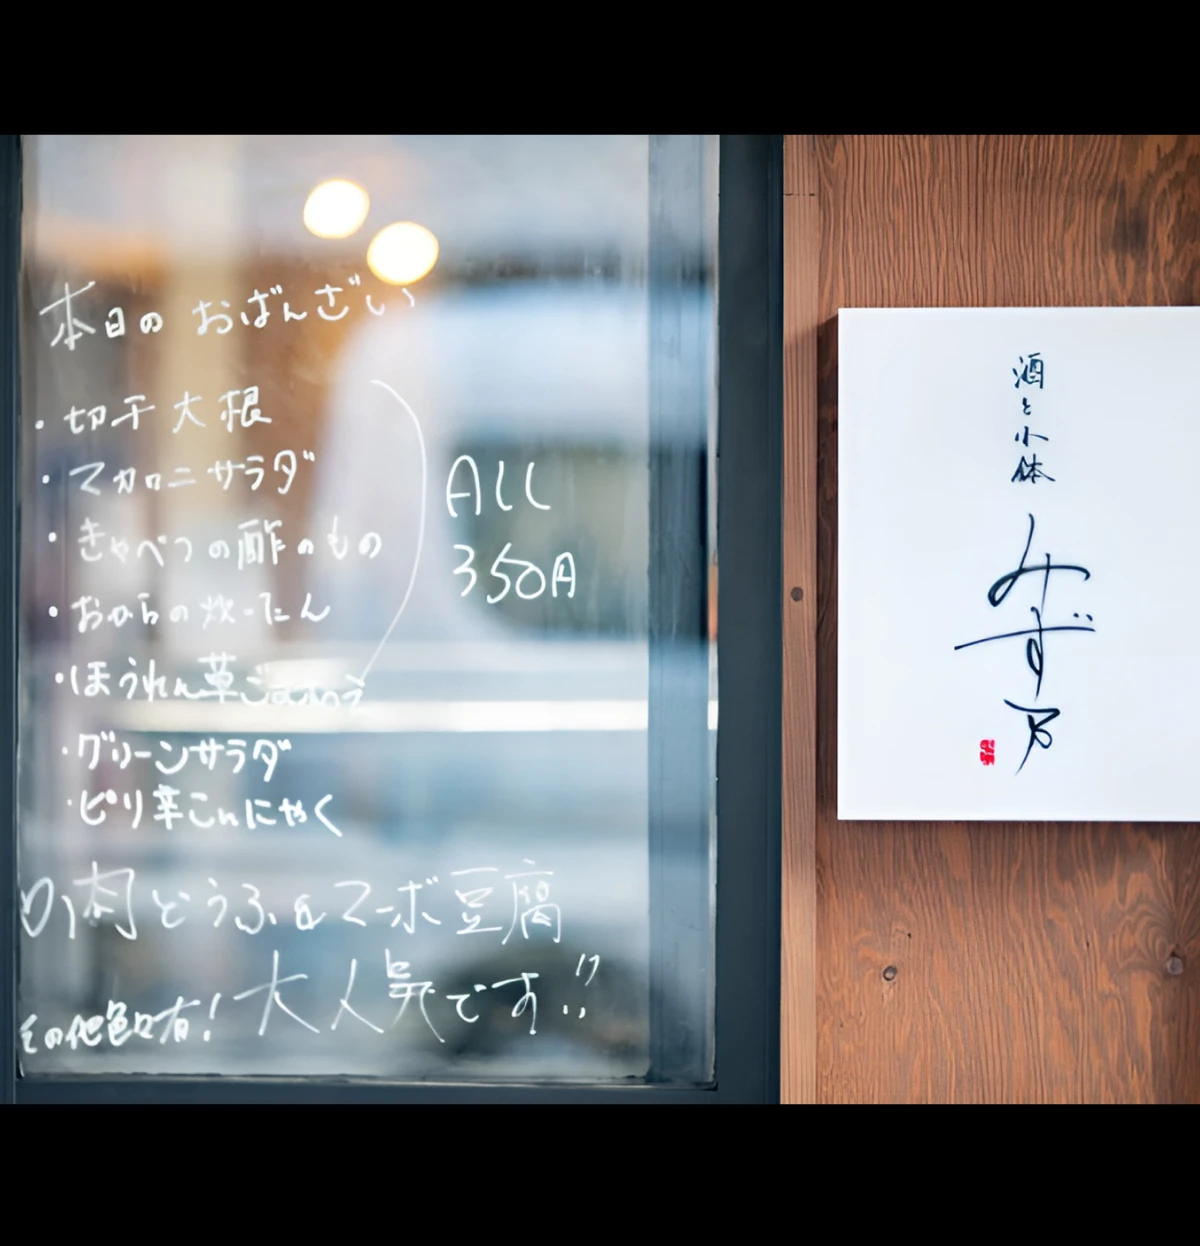 本日の おばんざい
・切干大根
・マカロニサラダ
・きゃべつの酢のもの
・おからの炊いたん
・ほうれん草ごまあえ
・グリーンサラダ
・ピリ辛こんにゃく
ALL
350円
肉どうふ&マーボ豆腐
大人気です!!
その他色々有!
酒と小体
みずか